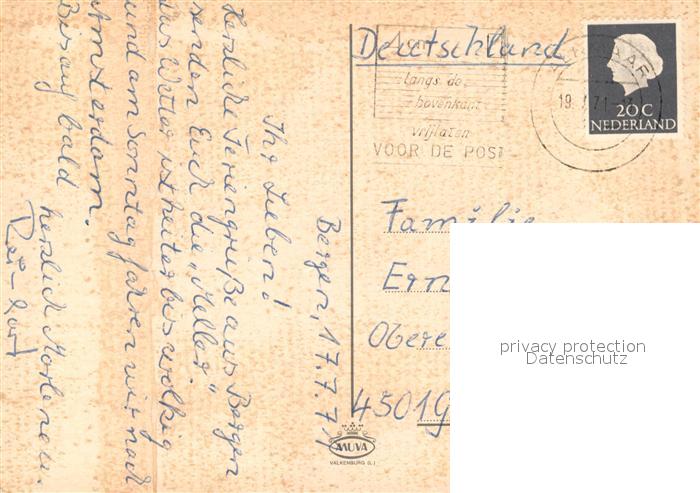 Bergen, 17.7.71
Ihr Lieben!
Herzliche Feriengrüße aus Bergen
senden Euch die „Meller".
Das Wetter ist heiter bis wolkig
und am Sonntag fahren wir nach
Amsterdam.
Bis auf bald
herzlich Marlene u.
Deutschland
Langs de
bovenkant
vrijlaten
VOOR DE POST
ALKMAAR
19
71
20 C
NEDERLAND
Familie
Ern
Obere
4501 G
MUVA
VALKENBURG (L.)
privacy protection
Datenschutz